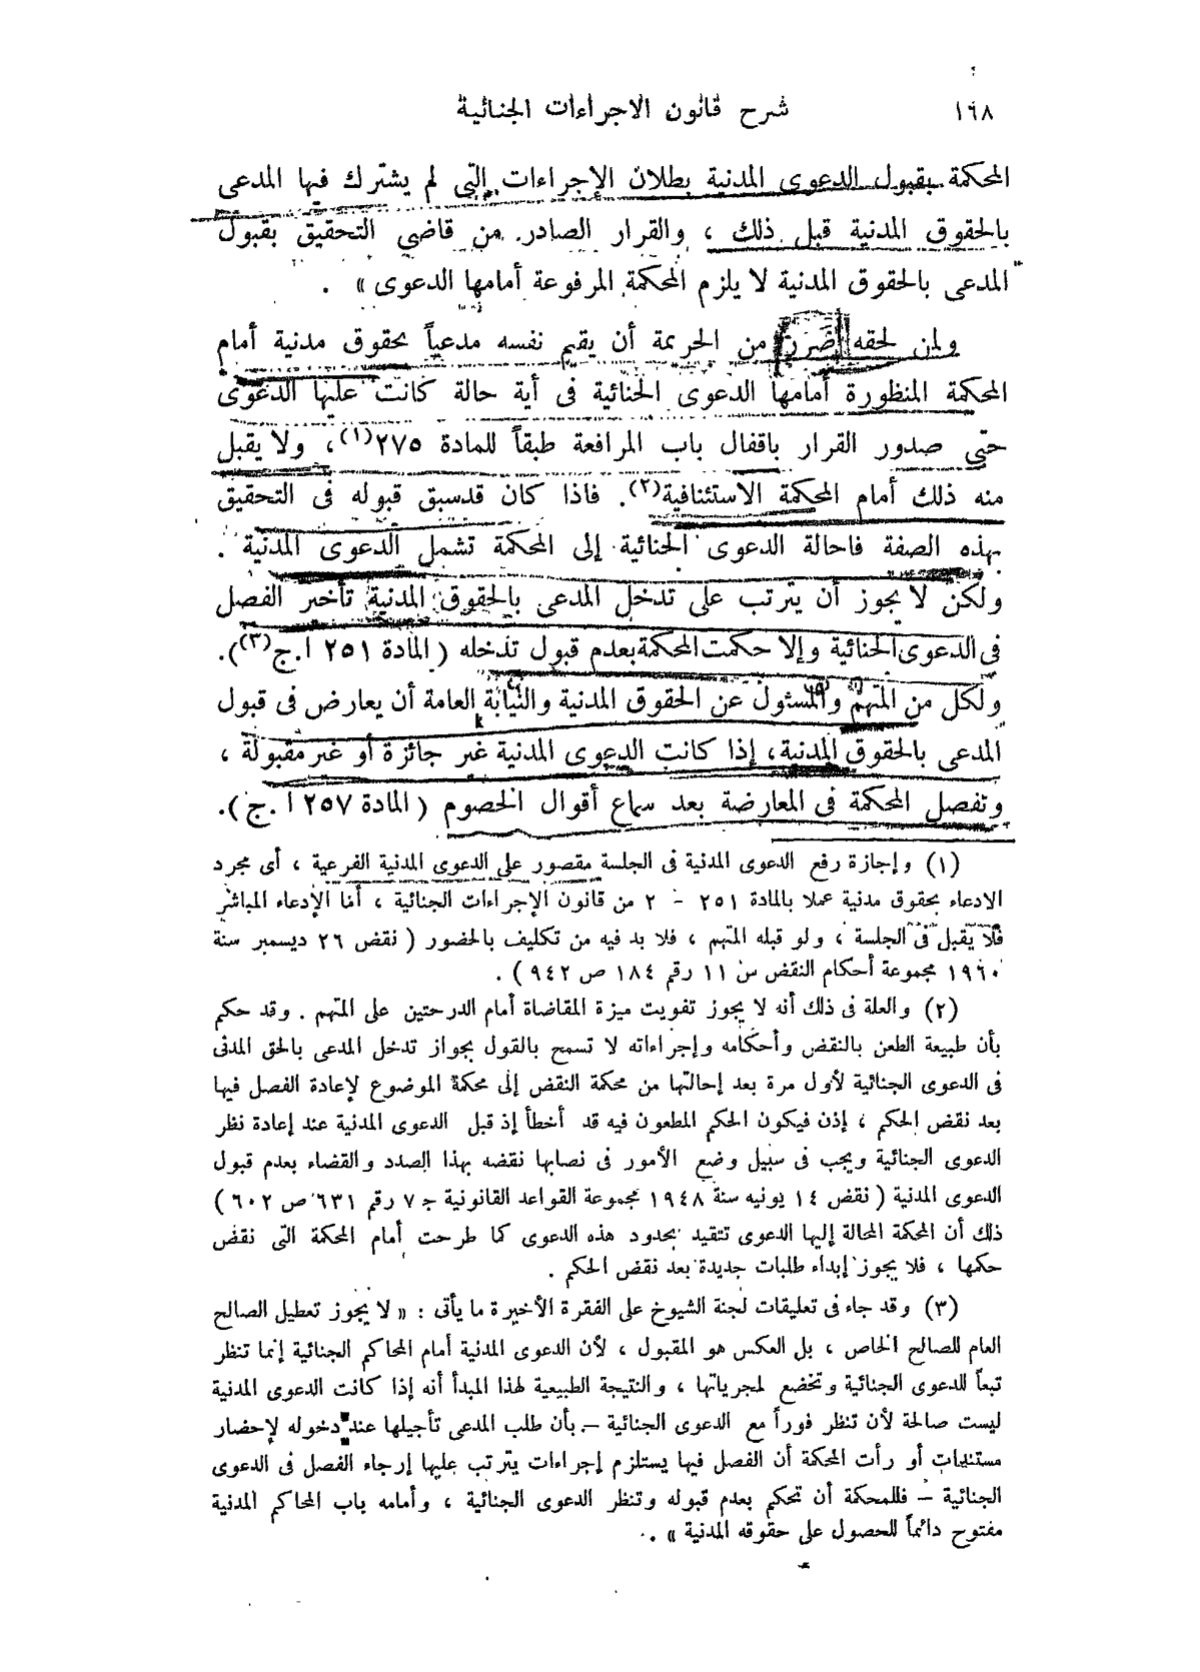 ١٦٨
شرح قانون الاجراءات الجنائية
المحكمة بقبول الدعوى المدنية بطلان الإجراءات التى لم يشترك فيها المدعى
بالحقوق المدنية قبل ذلك ، والقرار الصادر من قاضى التحقيق بقبول
المدعى بالحقوق المدنية لا يلزم المحكمة المرفوعة أمامها الدعوى » .
ولمن لحقه ضرر من الجريمة أن يقيم نفسه مدعياً بحقوق مدنية أمام
المحكمة المنظورة أمامها الدعوى الجنائية فى أية حالة كانت عليها الدعوى
حتى صدور القرار باقفال باب المرافعة طبقاً للمادة ٢٧٥(١)، ولا يقبل
منه ذلك أمام المحكمة الاستئنافية(٢). فاذا كان قدسبق قبوله فى التحقيق
بهذه الصفة فاحالة الدعوى الجنائية إلى المحكمة تشمل الدعوى المدنية .
ولكن لا يجوز أن يترتب على تدخل المدعى بالحقوق المدنية تأخير الفصل
فى الدعوى الجنائية وإلا حكمت المحكمة بعدم قبول تدخله ( المادة ٢٥١ ا.ج(٣)).
ولكل من المتهم والمسئول عن الحقوق المدنية والنيابة العامة أن يعارض فى قبول
المدعى بالحقوق المدنية، إذا كانت الدعوى المدنية غير جائزة أو غير مقبولة ،
وتفصل المحكمة فى المعارضة بعد سماع أقوال الخصوم ( المادة ٢٥٧ ا .ج ).
(١) وإجازة رفع الدعوى المدنية فى الجلسة مقصور على الدعوى المدنية الفرعية ، أى مجرد
الادعاء بحقوق مدنية عملا بالمادة ٢٥١ - ٢ من قانون الإجراءات الجنائية ، أما الإدعاء المباشر
فلا يقبل فى الجلسة ، ولو قبله المتهم ، فلا بد فيه من تكليف بالحضور ( نقض ٢٦ ديسمبر سنة
١٩٦٠ مجموعة أحكام النقض س ١١ رقم ١٨٤ ص ٩٤٢ ) .
(٢) والعلة فى ذلك أنه لا يجوز تفويت ميزة المقاضاة أمام الدرجتين على المتهم . وقد حكم
بأن طبيعة الطعن بالنقض وأحكامه وإجراءاته لا تسمح بالقول بجواز تدخل المدعى بالحق المدنى
فى الدعوى الجنائية لأول مرة بعد إحالتها من محكمة النقض إلى محكمة الموضوع لإعادة الفصل فيها
بعد نقض الحكم ، إذن فيكون الحكم المطعون فيه قد أخطأ إذ قبل الدعوى المدنية عند إعادة نظر
الدعوى الجنائية ويجب فى سبيل وضع الأمور فى نصابها نقضه بهذا الصدد والقضاء بعدم قبول
الدعوى المدنية ( نقض ١٤ يونيه سنة ١٩٤٨ مجموعة القواعد القانونية ج ٧ رقم ٦٣١ ص ٦٠٢ )
ذلك أن المحكمة المحالة إليها الدعوى تتقيد بحدود هذه الدعوى كما طرحت أمام المحكمة التى نقض
حكمها ، فلا يجوز إبداء طلبات جديدة بعد نقض الحكم .
(٣) وقد جاء فى تعليقات لجنة الشيوخ على الفقرة الأخيرة ما يأتى : « لا يجوز تعطيل الصالح
العام للصالح الخاص ، بل العكس هو المقبول ، لأن الدعوى المدنية أمام المحاكم الجنائية إنما تنظر
تبعاً للدعوى الجنائية وتخضع لمجرياتها ، والنتيجة الطبيعية لهذا المبدأ أنه إذا كانت الدعوى المدنية
ليست صالحة لأن تنظر فوراً مع الدعوى الجنائية – بأن طلب المدعى تأجيلها عند دخوله لإحضار
مستندات أو رأت المحكمة أن الفصل فيها يستلزم إجراءات يترتب عليها إرجاء الفصل فى الدعوى
الجنائية – فللمحكمة أن تحكم بعدم قبوله وتنظر الدعوى الجنائية ، وأمامه باب المحاكم المدنية
مفتوح دائماً للحصول على حقوقه المدنية » .